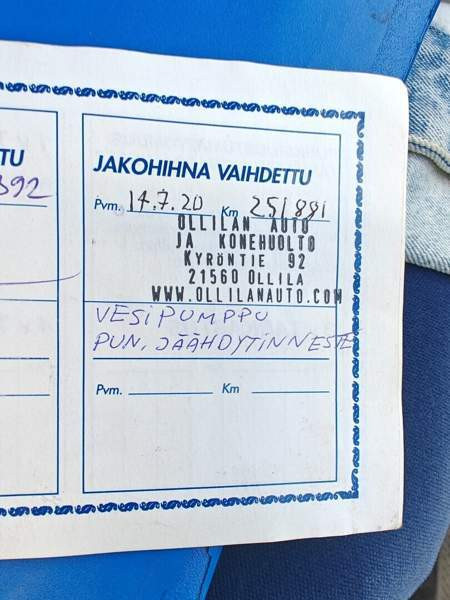 TU
392
JAKOHIHNA VAIHDETTU
Pvm. 14.7.20 Km 251891
OLLILAN AUTO
JA KONEHUOLTO
KYRÖNTIE 92
21560 OLLILA
WWW.OLLILANAUTO.COM
VESIPUMPPU
PUN. JÄÄHDYTINNESTE
Pvm. Km